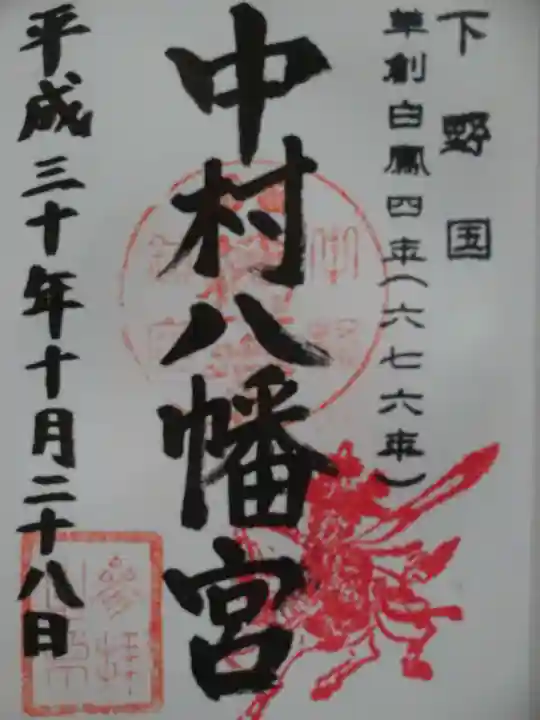 下野国
草創白鳳四年(六七六年)
中村八幡宮
平成三十年十月二十八日